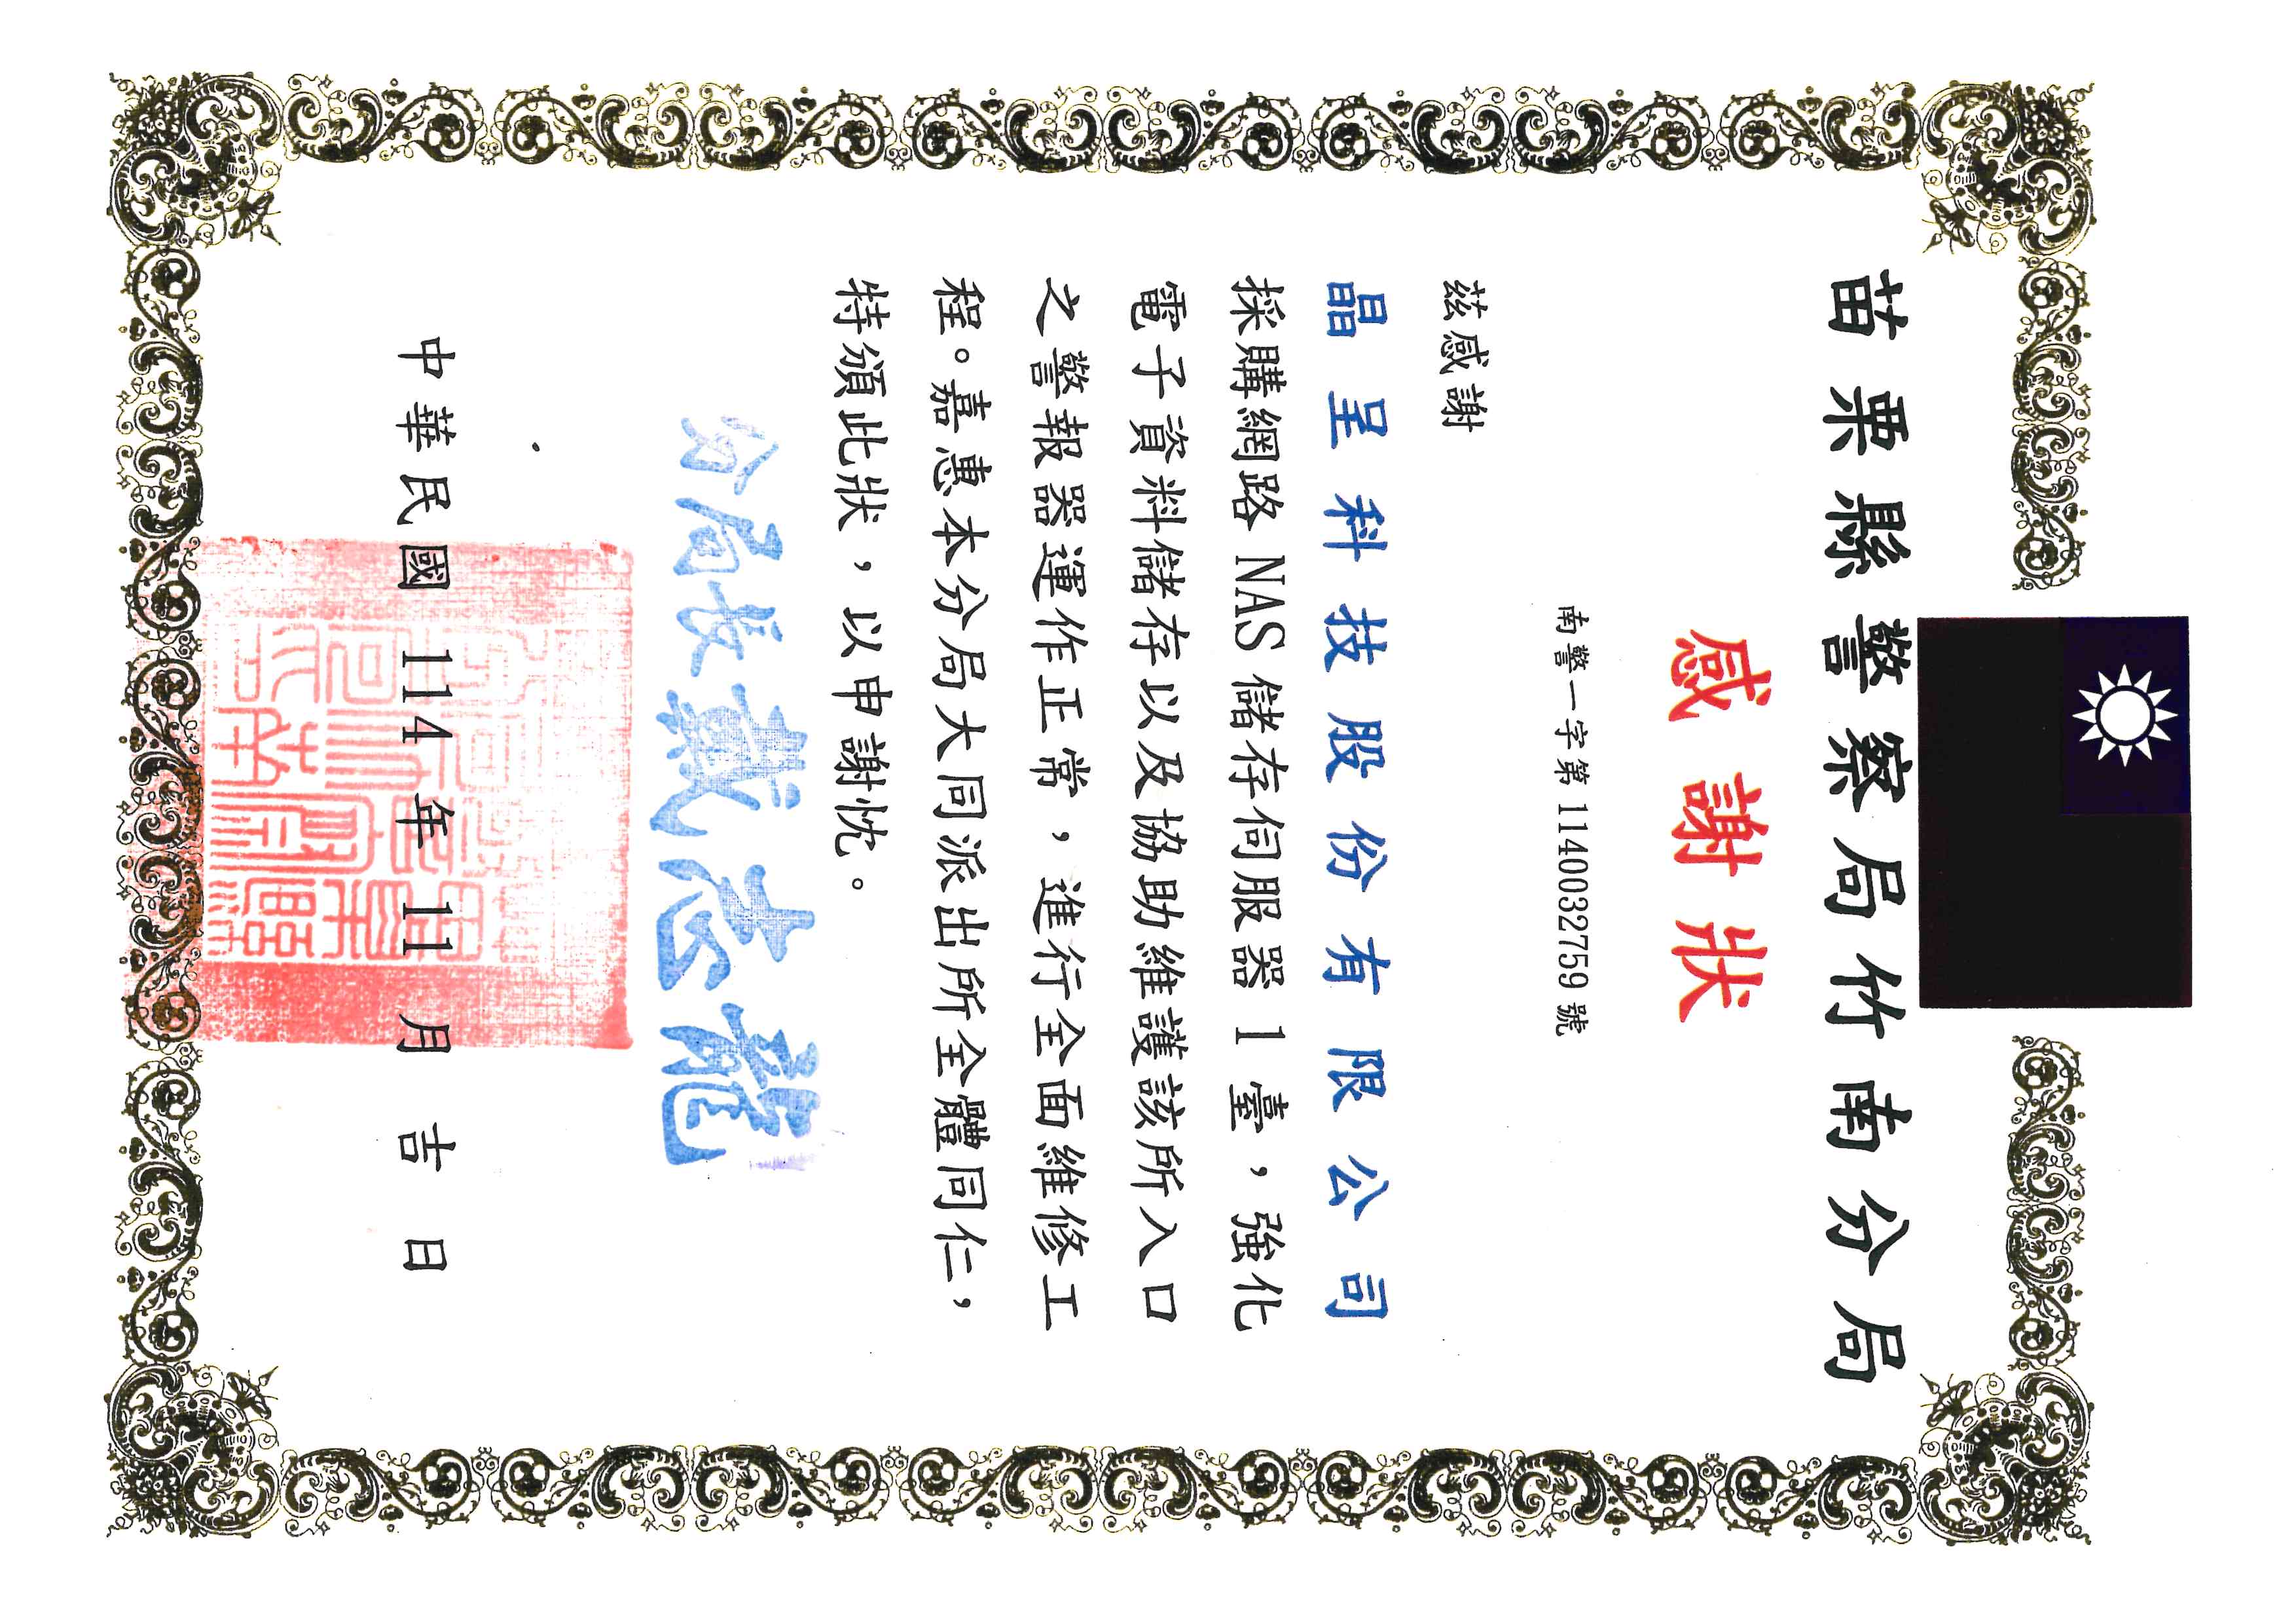 苗栗縣警察局竹南分局
感謝狀
南警一字第1140032759號
茲感謝
晶呈科技股份有限公司
採購網路NAS儲存伺服器1臺，強化
電子資料儲存以及協助維護該所入口
之警報器運作正常，進行全面維修工
程。嘉惠本分局大同派出所全體同仁，
特頒此狀，以申謝忱。
分局長戴志龍
中華民國114年11月吉日